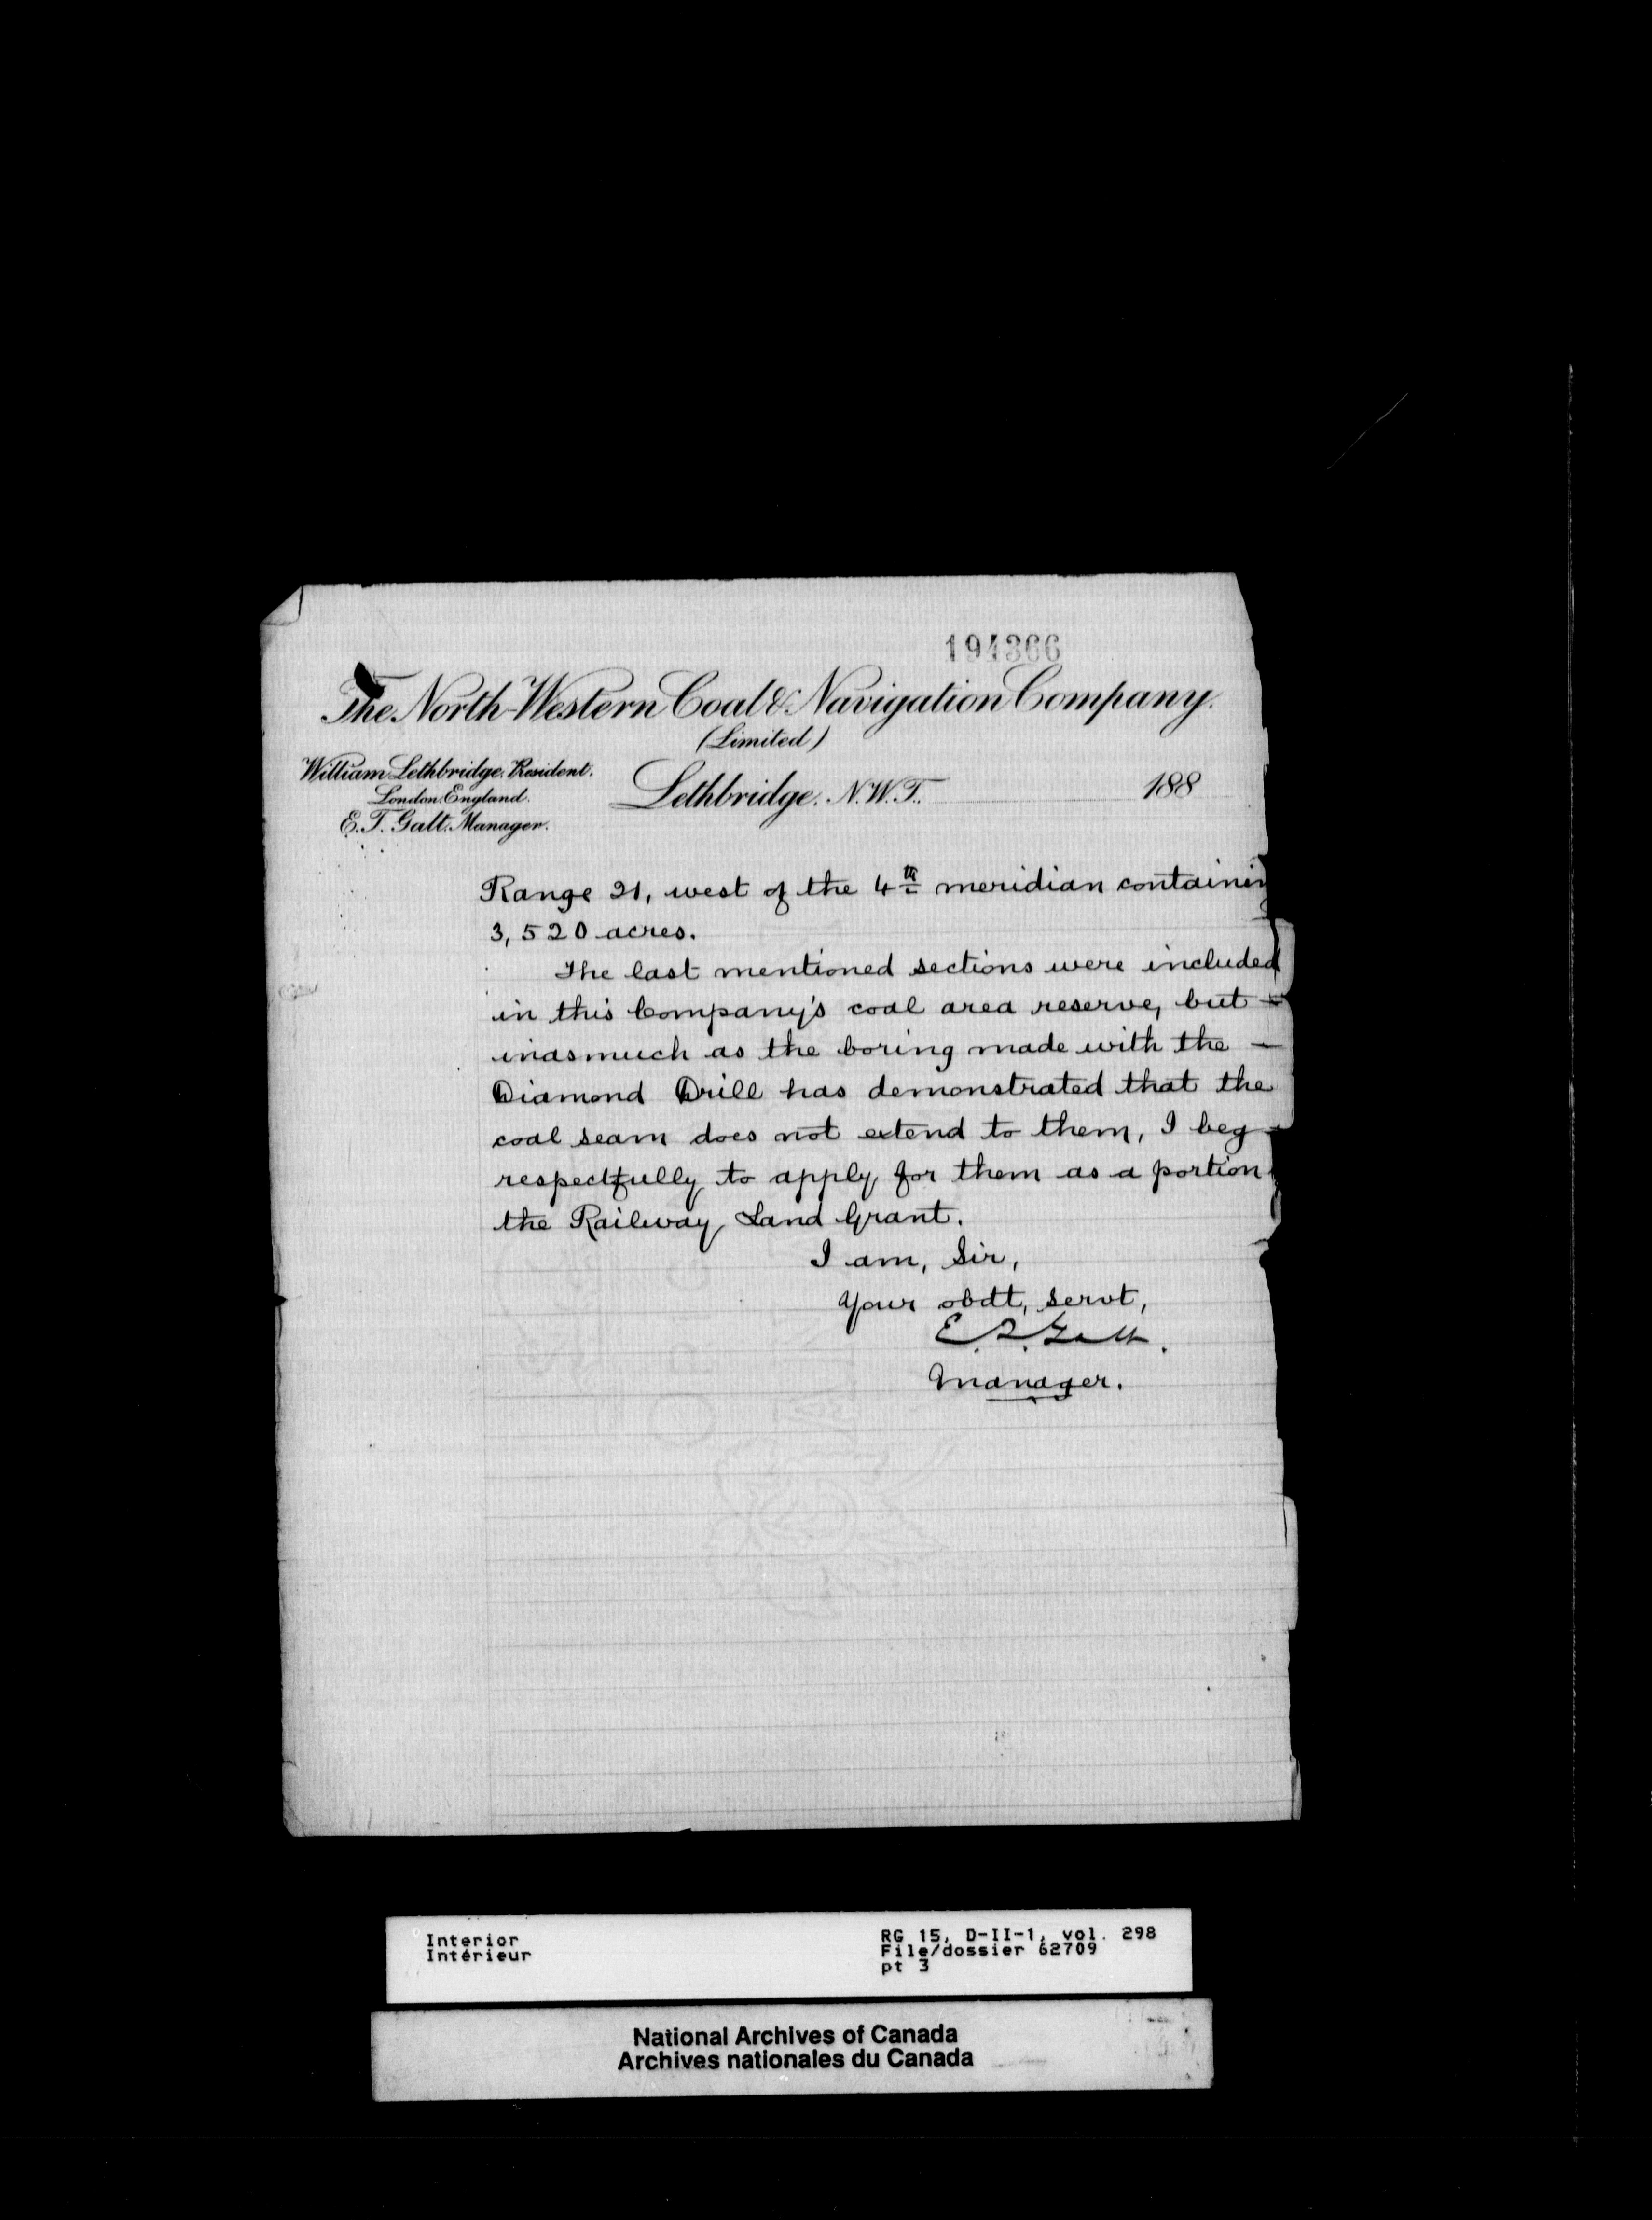 194366
The North-Western Coal & Navigation Company.
(Limited)
William Lethbridge. President.
London. England.
E. T. Galt. Manager.
Lethbridge. N.W.T. 188
Range 21, west of the 4th meridian containing
3,520 acres.
The last mentioned sections were included
in this Company's coal area reserve, but —
inasmuch as the boring made with the —
Diamond Drill has demonstrated that the
coal seam does not extend to them, I beg —
respectfully to apply for them as a portion
the Railway Land Grant.
I am, Sir,
Your obdt, servt,
E. T. Galt.
Manager.
Interior
Intérieur
RG 15, D-II-1, vol. 298
File/dossier 62709
pt 3
National Archives of Canada
Archives nationales du Canada